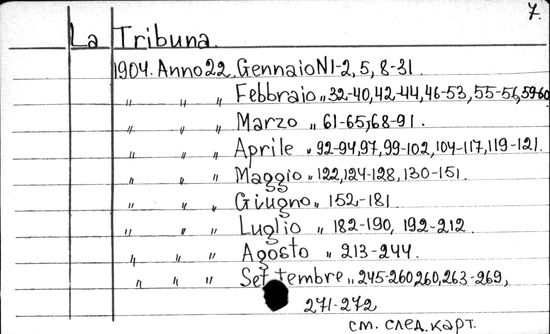 7.
La Tribuna.
1904. Anno 22. Gennaio N1-2, 5, 8-31.
" " " Febbraio " 32-40, 42-44, 46-53, 55-56, 59-60
" " " Marzo " 61-65, 68-91.
" " " Aprile " 92-94, 97, 99-102, 104-117, 119-121.
" " " Maggio " 122, 124-128, 130-151.
" " " Giugno " 152-181
" " " Luglio " 182-190, 192-212
" " " Agosto " 213-244.
" " " Settembre " 245-260 260, 263-269,
271-272
см. след. карт.